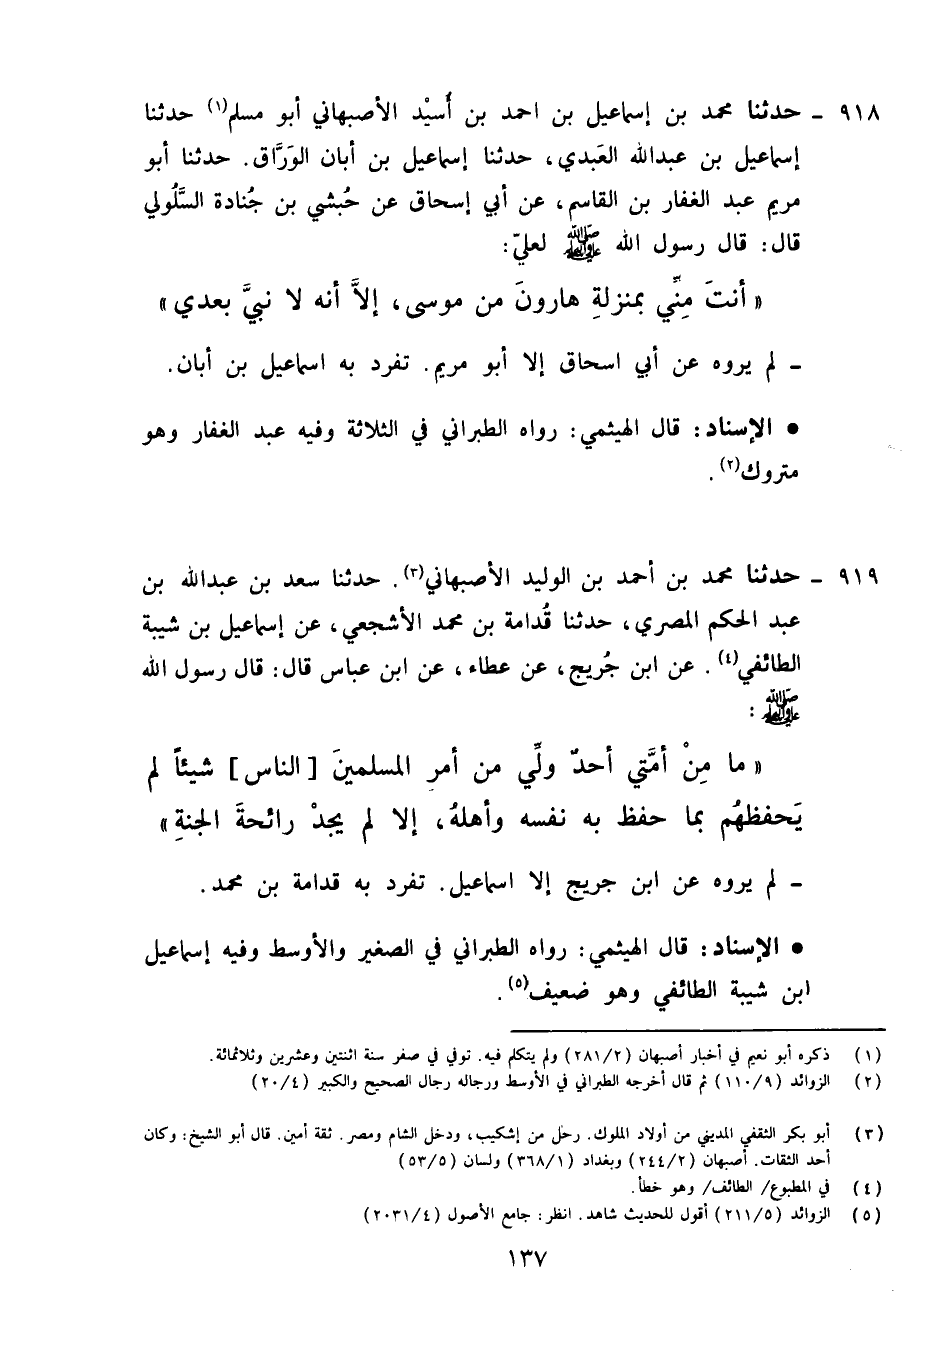 ٩١٨ ـ حدثنا محمد بن إسماعيل بن احمد بن أُسَيْد الأصبهاني أبو مسلم(١) حدثنا
إسماعيل بن عبدالله العَبدي، حدثنا إسماعيل بن أبان الوَرَّاق. حدثنا أبو
مريم عبد الغفار بن القاسم، عن أبي إسحاق عن حُبشي بن جُنادة السَّلُولي
قال: قال رسول الله ﷺ لعليّ:
« أنتَ مِنِّي بمنزلةِ هارونَ من موسى، إلاَّ أنه لا نبيَّ بعدي »
ـ لم يروه عن أبي اسحاق إلا أبو مريم. تفرد به اسماعيل بن أبان.
● الإسناد: قال الهيثمي: رواه الطبراني في الثلاثة وفيه عبد الغفار وهو
متروك(٢).
٩١٩ ـ حدثنا محمد بن أحمد بن الوليد الأصبهاني(٣). حدثنا سعد بن عبدالله بن
عبد الحكم المصري، حدثنا قُدامة بن محمد الأشجعي، عن إسماعيل بن شيبة
الطائفي(٤). عن ابن جُريج، عن عطاء، عن ابن عباس قال: قال رسول الله
ﷺ:
« ما مِنْ أمَّتي أحدٌ ولِّي من أمرِ المسلمينَ [الناس] شيئاً لم
يَحفظهُم بما حفظ به نفسه وأهلهُ، إلا لم يجدْ رائحةَ الجنةِ »
ـ لم يروه عن ابن جريج إلا اسماعيل. تفرد به قدامة بن محمد.
● الإسناد: قال الهيثمي: رواه الطبراني في الصغير والأوسط وفيه إسماعيل
ابن شيبة الطائفي وهو ضعيف(٥).
(١) ذكره أبو نعيم في أخبار أصبهان (٢٨١/٢) ولم يتكلم فيه. توفي في صفر سنة اثنتين وعشرين وثلاثمائة.
(٢) الزوائد (١١٠/٩) ثم قال أخرجه الطبراني في الأوسط ورجاله رجال الصحيح والكبير (٢٠/٤)
(٣) أبو بكر الثقفي المديني من أولاد الملوك. رحل من إشكيب، ودخل الشام ومصر. ثقة أمين. قال أبو الشيخ: وكان
أحد الثقات. أصبهان (٢٤٤/٢) وبغداد (٣٦٨/١) ولسان (٥٣/٥)
(٤) في المطبوع/ الطائف/ وهو خطأ.
(٥) الزوائد (٢١١/٥) أقول للحديث شاهد. انظر: جامع الأصول (٢٠٣١/٤)
١٣٧